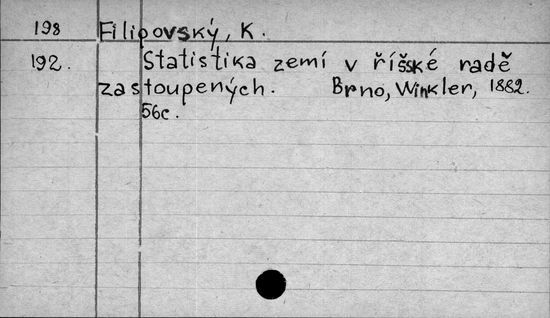 198 Filipovský, K.
192. Statistika zemí v říšské radě
zastoupených. Brno, Winkler, 1882.
56c.